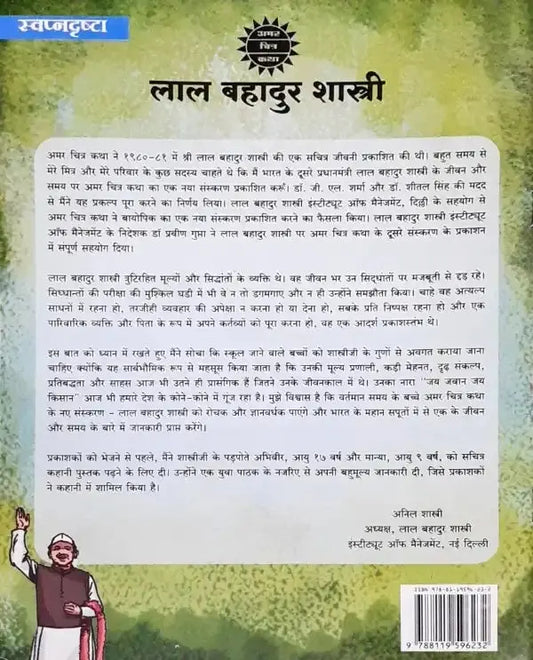 स्वप्नदृष्टा
अमर
चित्र
कथा
लाल बहादुर शास्त्री
अमर चित्र कथा ने १९८०-८१ में श्री लाल बहादुर शास्त्री की एक सचित्र जीवनी प्रकाशित की थी। बहुत समय से
मेरे मित्र और मेरे परिवार के कुछ सदस्य चाहते थे कि मैं भारत के दूसरे प्रधानमंत्री लाल बहादुर शास्त्री के जीवन और
समय पर अमर चित्र कथा का एक नया संस्करण प्रकाशित करूँ। डॉ. जी. एल. शर्मा और डॉ. शीतल सिंह की मदद
से मैंने यह प्रकल्प पूरा करने का निर्णय लिया। लाल बहादुर शास्त्री इंस्टीट्यूट ऑफ मैनेजमेंट, दिल्ली के सहयोग से
अमर चित्र कथा ने बायोपिक का एक नया संस्करण प्रकाशित करने का फैसला किया। लाल बहादुर शास्त्री इंस्टीट्यूट
ऑफ मैनेजमेंट के निदेशक डॉ प्रवीण गुप्ता ने लाल बहादुर शास्त्री पर अमर चित्र कथा के दूसरे संस्करण के प्रकाशन
में संपूर्ण सहयोग दिया।
लाल बहादुर शास्त्री त्रुटिरहित मूल्यों और सिद्धांतों के व्यक्ति थे। वह जीवन भर उन सिद्धांतों पर मजबूती से दृढ़ रहे।
सिध्धान्तों की परीक्षा की मुश्किल घड़ी में भी वे न तो डगमगाए और न ही उन्होंने समझौता किया। चाहे वह अत्यल्प
साधनों में रहना हो, तरजीही व्यवहार की अपेक्षा न करना हो या देना हो, सबके प्रति निष्पक्ष रहना हो और एक
पारिवारिक व्यक्ति और पिता के रूप में अपने कर्तव्यों को पूरा करना हो, वह एक आदर्श प्रकाशस्तंभ थे।
इस बात को ध्यान में रखते हुए मैंने सोचा कि स्कूल जाने वाले बच्चों को शास्त्रीजी के गुणों से अवगत कराया जाना
चाहिए क्योंकि यह सार्वभौमिक रूप से महसूस किया जाता है कि उनकी मूल्य प्रणाली, कड़ी मेहनत, दृढ़ सकल्प,
प्रतिबद्धता और साहस आज भी उतने ही प्रासंगिक हैं जितने उनके जीवनकाल में थे। उनका नारा "जय जवान जय
किसान" आज भी हमारे देश के कोने-कोने में गूंज रहा है। मुझे विश्वास है कि वर्तमान समय के बच्चे अमर चित्र कथा
के नए संस्करण – लाल बहादुर शास्त्री को रोचक और ज्ञानवर्धक पाएंगे और भारत के महान सपूतों में से एक के जीवन
और समय के बारे में जानकारी प्राप्त करेंगे।
प्रकाशकों को भेजने से पहले, मैंने शास्त्रीजी के पड़पोते अभिवीर, आयु १७ वर्ष और मान्या, आयु ९ वर्ष, को सचित्र
कहानी पुस्तक पढ़ने के लिए दी। उन्होंने एक युवा पाठक के नजरिए से अपनी बहुमूल्य जानकारी दी, जिसे प्रकाशकों
ने कहानी में शामिल किया है।
अनिल शास्त्री
अध्यक्ष, लाल बहादुर शास्त्री
इंस्टीट्यूट ऑफ मैनेजमेंट, नई दिल्ली
ISBN 978-81-19596-23-2
9 788119 596232